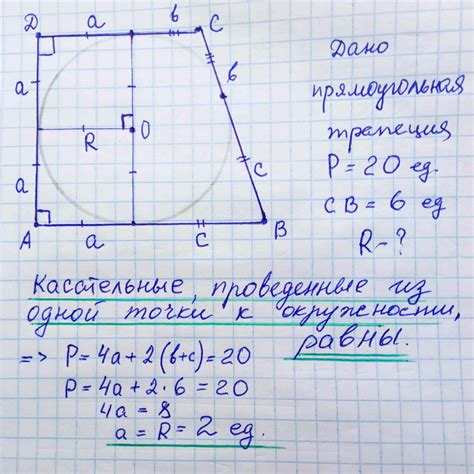 D a b C
a b
R O
a C
A a C B
Дано
прямоугольная
трапеция
P = 20 ед.
CB = 6 ед
R - ?
Касательные, проведенные из
одной точки к окружности,
равны.
=> P = 4a + 2(b+c) = 20
P = 4a + 2·6 = 20
4a = 8
a = R = 2 ед.